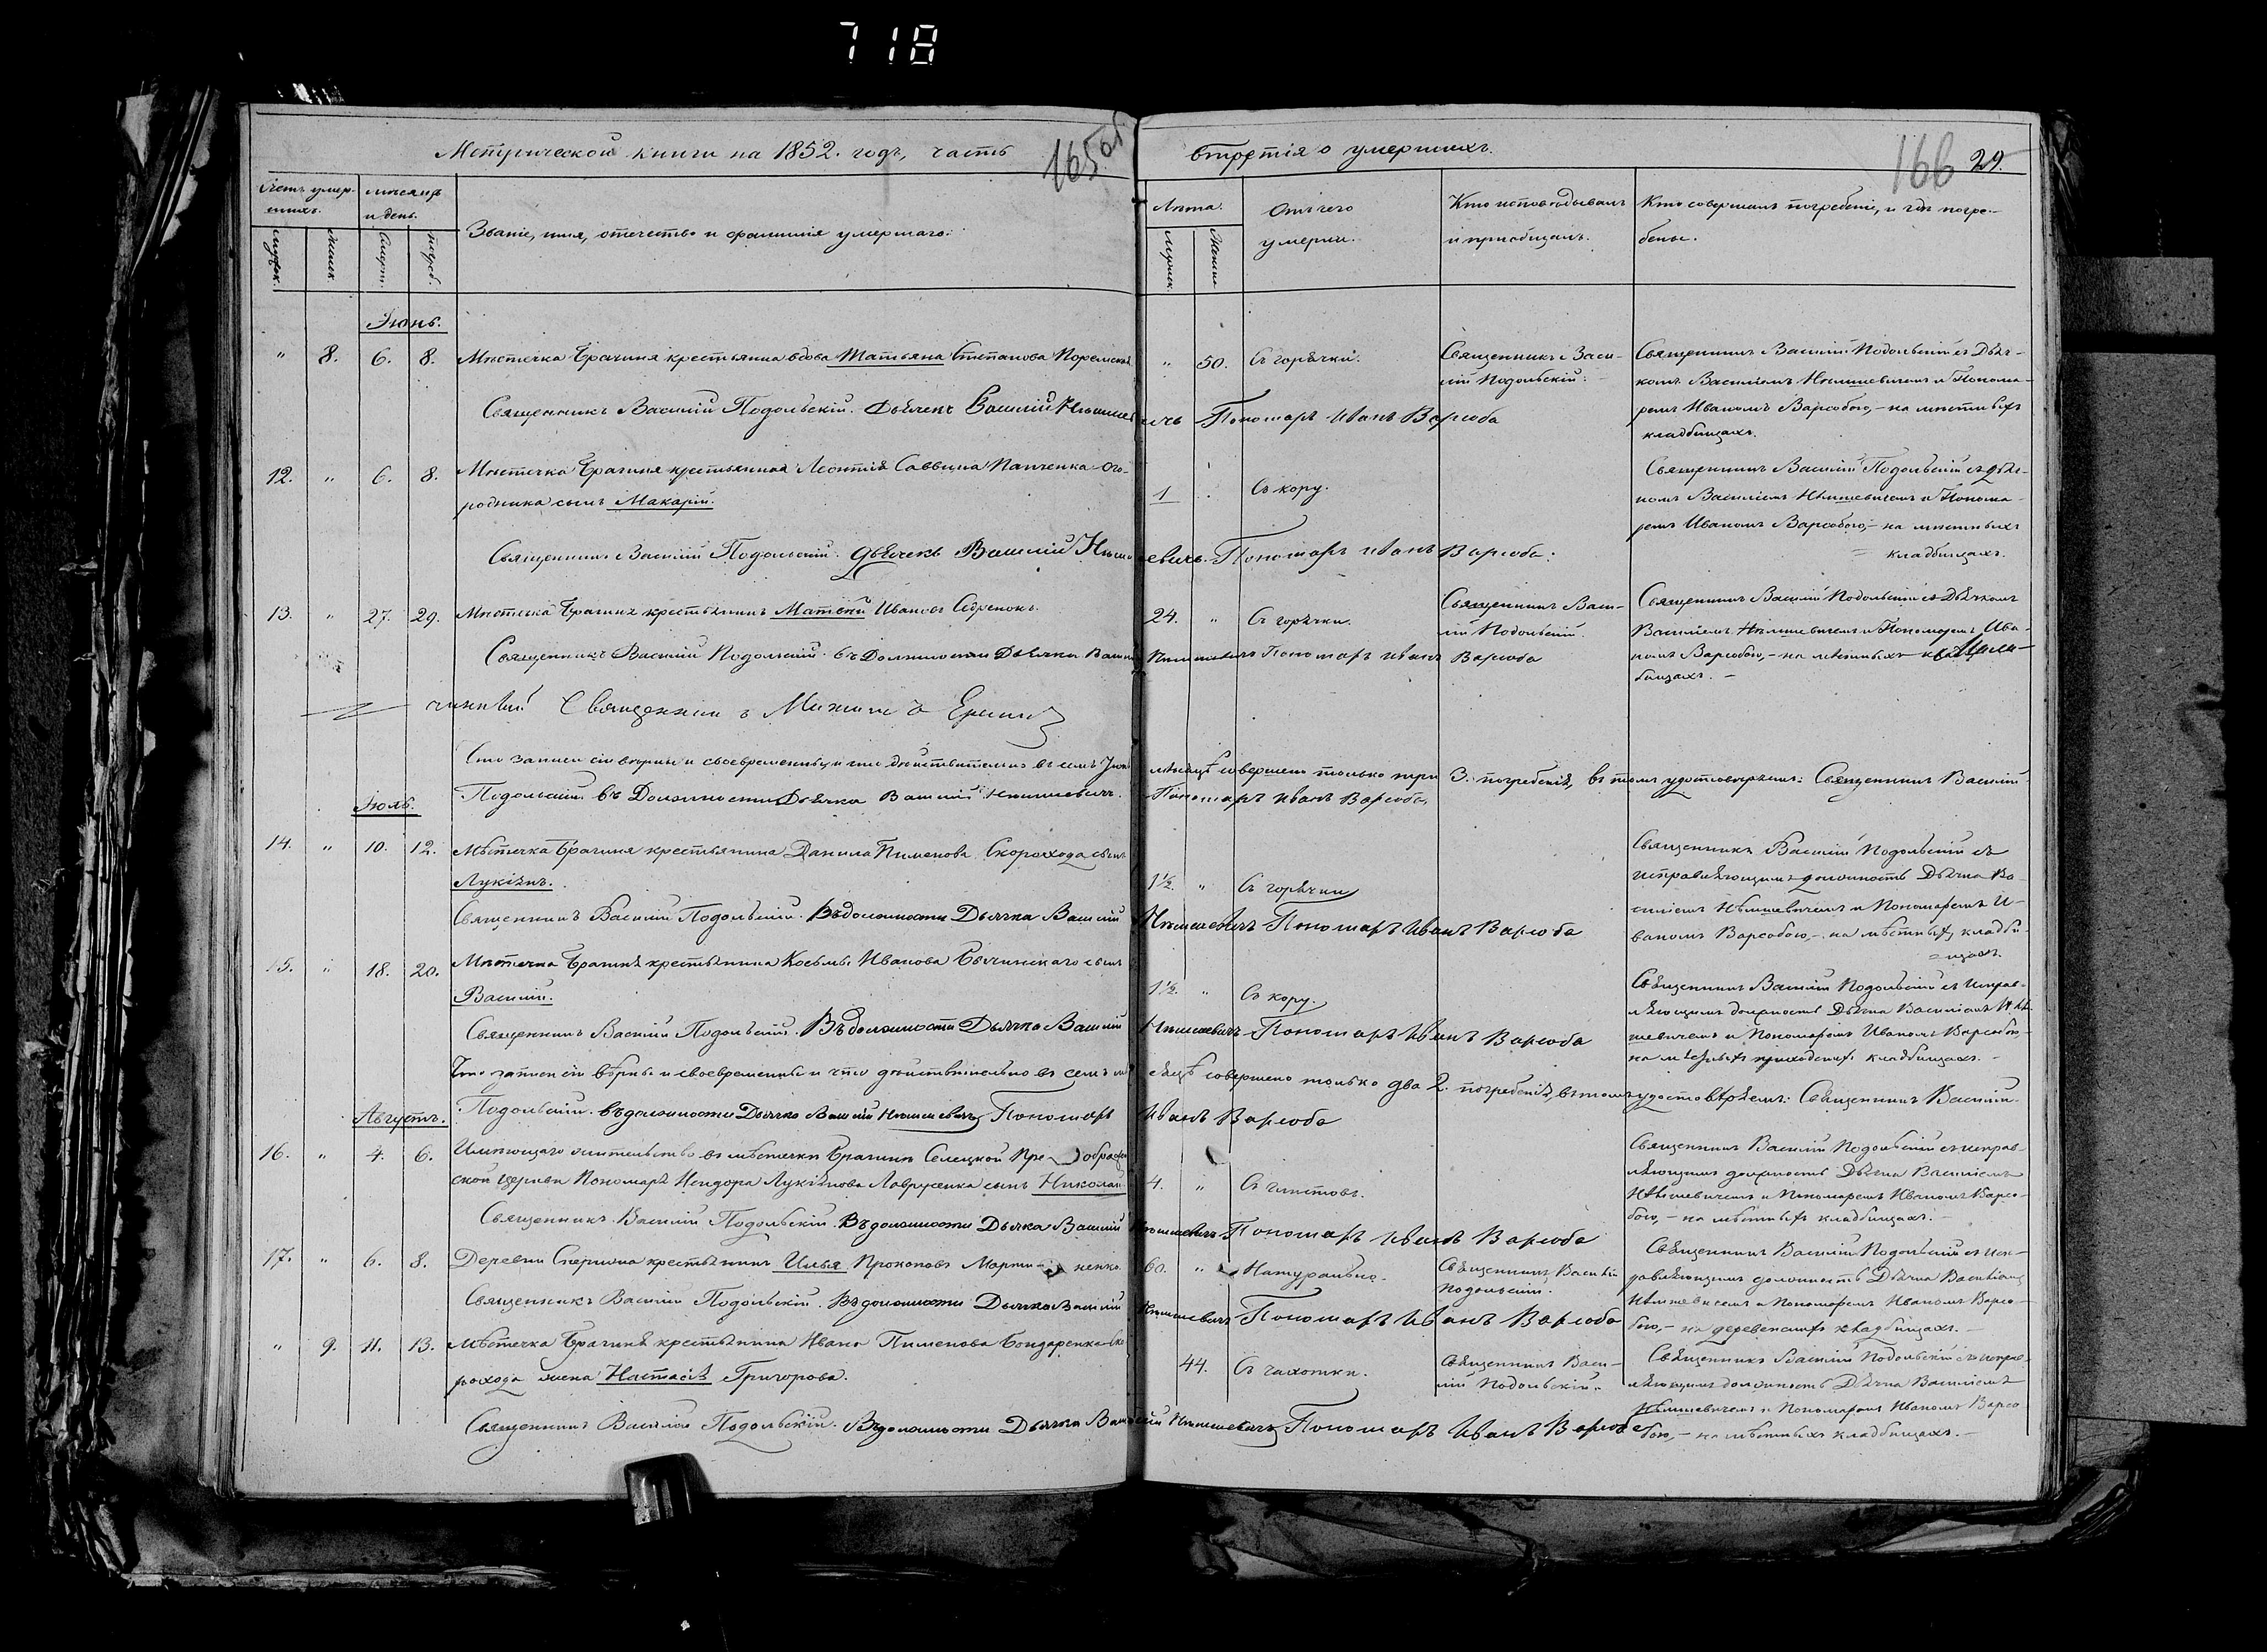 718
Метрической книги на 1852. годъ, часть
165об
третія о умершихъ.
166 29.
Счетъ умер-
шихъ.
мѣсяцъ
и день.
Званіе, имя, отечество и фамилія умершаго.
Мужск.
Женск.
Смерт.
погреб.
Лѣта.
Отъ чего
умерли.
Кто исповѣдывалъ
и пріобщалъ.
Кто совершалъ погребеніе, и гдѣ погре-
бены.
Мужск.
Женск
Іюнь.
" 8. 6. 8. Мѣстечка Брагиня крестьянка вдова Татьяна Степанова
" 50. Съ горячки.
Священникъ Васи-
лій Подольскій.
Священникъ Василій Подольскій съ Дьяч-
комъ Василіемъ Нѣмшевичемъ и Понома-
ремъ Иваномъ Варсобою,- на мѣстныхъ
кладбищахъ.
Священникъ Василій Подольскій. Дьячекъ Василій Нѣмшевичъ Пономарь Иванъ Варсоба
12. " 6. 8. Мѣстечка Брагиня крестьянина Леонтія Саввина Панченка Ого-
родника сынъ Макарій.
1 Съ кору.
Священникъ Василій Подольскій съ дьяч-
комъ Василіемъ Нѣмшевичемъ и Понома-
ремъ Иваномъ Варсобою,- на мѣстныхъ
кладбищахъ.
Священникъ Василій Подольскій. Дьячекъ Василій Нѣмшевичъ. Пономарь Иванъ Варсоба.
13. " 27. 29. Мѣстечка Брагиня крестьянинъ Матвѣй Ивановъ
24. " Съ горячки.
Священникъ Васи-
лій Подольскій.
Священникъ Василій Подольскій съ Дьячкомъ
Василіемъ Нѣмшевичемъ и Пономаремъ Ива-
номъ Варсобою,- на мѣстныхъ клад-
бищахъ. -
Священникъ Василій Подольскій. Въ Должности Дьячка Василій Нѣмшевичъ Пономарь Иванъ Варсоба
Священникъ
Что записи сіи вѣрны и своевременны и что дѣйствительно въ семъ Іюнѣ мѣсяцѣ совершено только три 3. погребенія, въ томъ удостовѣряемъ: Священникъ Василій
Подольскій. Въ Должности Дьячка Василій Нѣмшевичъ. Пономарь Иванъ Варсоба,
Іюль.
14. " 10. 12. Мѣстечка Брагиня крестьянина Данила Пименова Скорохода сынъ
Лукіянъ.
1½. " Съ горячки
Священникъ Василій Подольскій съ
исправляющимъ должность Дьячка Ва-
силіемъ Нѣмшевичемъ и Пономаремъ И-
ваномъ Варсобою,- на мѣстныхъ кладби-
щахъ.
Священникъ Василій Подольскій. Въ должности Дьячка Василій Нѣмшевичъ Пономарь Иванъ Варсоба
15. " 18. 20. Мѣстечка Брагиня крестьянина Косьмы Иванова сынъ
Василій.
1½. " Съ кору.
Священникъ Василій Подольскій съ исправ-
ляющимъ должность Дьячка Василіемъ Нѣм-
шевичемъ и Пономаремъ Иваномъ Варсобою,-
на мѣстныхъ приходскихъ кладбищахъ. -
Священникъ Василій Подольскій. Въ должности Дьячка Василій Нѣмшевичъ Пономарь Иванъ Варсоба
Что записи сіи вѣрны и своевременны и что дѣйствительно въ семъ мѣсяцѣ совершено только два 2. погребенія, въ томъ удостовѣряемъ: Священникъ Василій
Подольскій. Въ должности Дьячка Василій Нѣмшевичъ Пономарь Иванъ Варсоба
Августъ.
16. " 4. 6. Имѣющаго жительство въ мѣстечкѣ Брагинѣ Селецкой Преображен
ской церкви Пономаря Исидора Лукіянова Лаврусенка сынъ Николай
4. " Съ глистовъ.
Священникъ Василій Подольскій съ исправ-
ляющимъ должность Дьячка Василіемъ
Нѣмшевичемъ и Пономаремъ Иваномъ Варсо-
бою,- на мѣстныхъ кладбищахъ. -
Священникъ Василій Подольскій. Въ должности Дьячка Василій Нѣмшевичъ Пономарь Иванъ Варсоба
17. " 6. 8. Деревни крестьянинъ Илья Прокоповъ Марти-ненко.
60. " Натурально.
Священникъ Василій
Подольскій.
Священникъ Василій Подольскій съ исп-
равляющимъ должность Дьячка Василіемъ
Нѣмшевичемъ и Пономаремъ Иваномъ Варсо-
бою,- на деревенскихъ кладбищахъ. -
Священникъ Василій Подольскій. Въ должности Дьячка Василій Нѣмшевичъ Пономарь Иванъ Варсоба
" 9. 11. 13. Мѣстечка Брагиня крестьянина Ивана Пименова Бондаренка Ско
рохода жена Настасія Григорова.
44. Съ чахотки.
Священникъ Васи-
лій Подольскій.
Священникъ Василій Подольскій съ исправ-
ляющимъ должность Дьячка Василіемъ
Нѣмшевичемъ и Пономаремъ Иваномъ Варсо
бою,- на мѣстныхъ кладбищахъ. -
Священникъ Василій Подольскій. Въ должности Дьячка Василій Нѣмшевичъ Пономарь Иванъ Варсоба